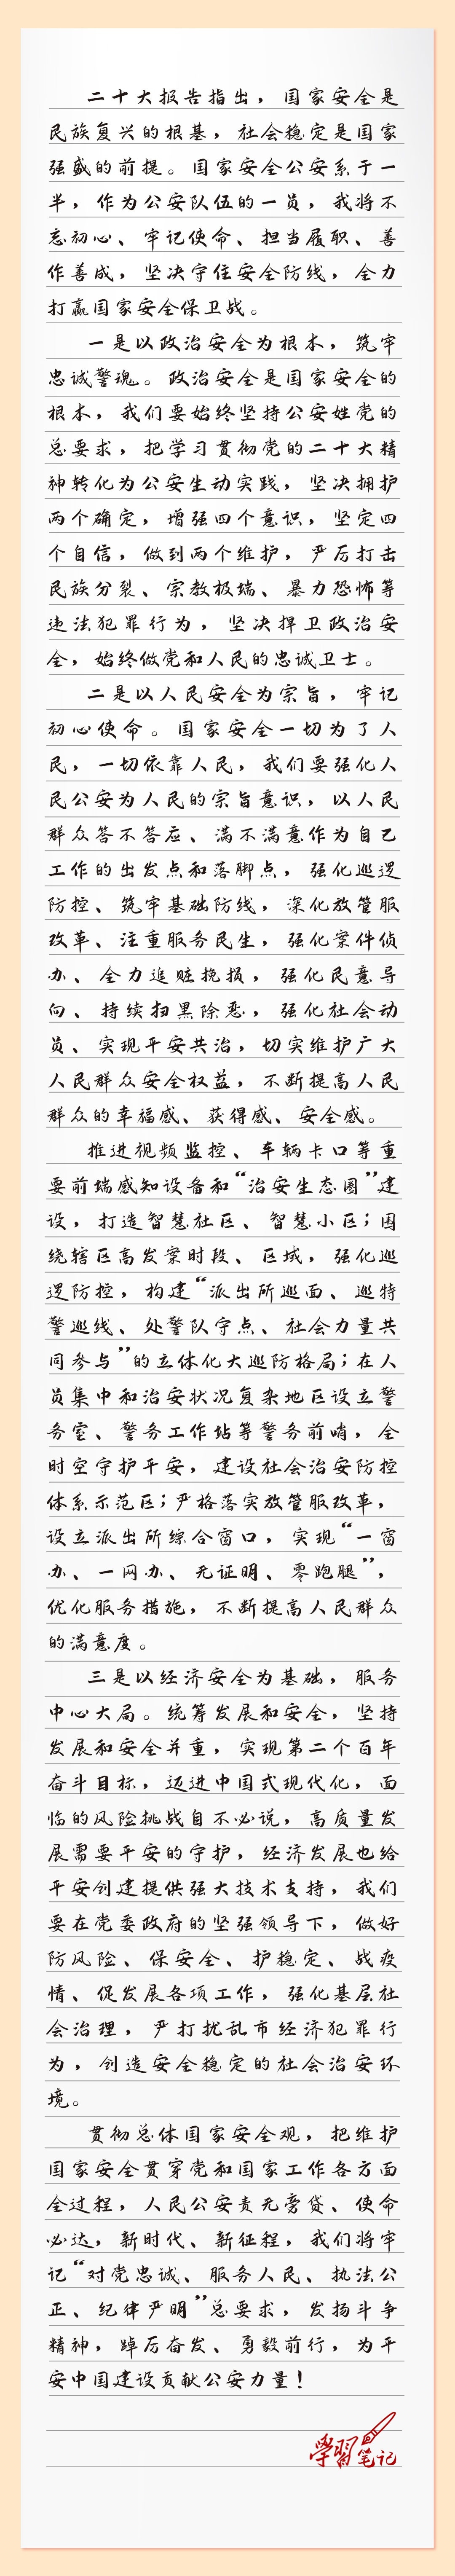 二十大报告指出，国家安全是
民族复兴的根基，社会稳定是国家
强盛的前提。国家安全公安系于一
半，作为公安队伍的一员，我将不
忘初心、牢记使命、担当履职、善
作善成，坚决守住安全防线，全力
打赢国家安全保卫战。
一是以政治安全为根本，筑牢
忠诚警魂。政治安全是国家安全的
根本，我们要始终坚持公安姓党的
总要求，把学习贯彻党的二十大精
神转化为公安生动实践，坚决拥护
两个确定，增强四个意识，坚定四
个自信，做到两个维护，严厉打击
民族分裂、宗教极端、暴力恐怖等
违法犯罪行为，坚决捍卫政治安
全，始终做党和人民的忠诚卫士。
二是以人民安全为宗旨，牢记
初心使命。国家安全一切为了人
民，一切依靠人民，我们要强化人
民公安为人民的宗旨意识，以人民
群众答不答应、满不满意作为自己
工作的出发点和落脚点，强化巡逻
防控、筑牢基础防线，深化放管服
改革、注重服务民生，强化案件侦
办、全力追赃挽损，强化民意导
向、持续扫黑除恶，强化社会动
员、实现平安共治，切实维护广大
人民群众安全权益，不断提高人民
群众的幸福感、获得感、安全感。
推进视频监控、车辆卡口等重
要前端感知设备和“治安生态圈”建
设，打造智慧社区、智慧小区；围
绕辖区高发案时段、区域，强化巡
逻防控，构建“派出所巡面、巡特
警巡线、处警队守点、社会力量共
同参与”的立体化大巡防格局；在人
员集中和治安状况复杂地区设立警
务室、警务工作站等警务前哨，全
时空守护平安，建设社会治安防控
体系示范区；严格落实放管服改革，
设立派出所综合窗口，实现“一窗
办、一网办、无证明、零跑腿”，
优化服务措施，不断提高人民群众
的满意度。
三是以经济安全为基础，服务
中心大局。统筹发展和安全，坚持
发展和安全并重，实现第二个百年
奋斗目标，迈进中国式现代化，面
临的风险挑战自不必说，高质量发
展需要平安的守护，经济发展也给
平安创建提供强大技术支持，我们
要在党委政府的坚强领导下，做好
防风险、保安全、护稳定、战疫
情、促发展各项工作，强化基层社
会治理，严打扰乱市经济犯罪行
为，创造安全稳定的社会治安环
境。
贯彻总体国家安全观，把维护
国家安全贯穿党和国家工作各方面
全过程，人民公安责无旁贷、使命
必达，新时代、新征程，我们将牢
记“对党忠诚、服务人民、执法公
正、纪律严明”总要求，发扬斗争
精神，踔厉奋发、勇毅前行，为平
安中国建设贡献公安力量！
學習笔记